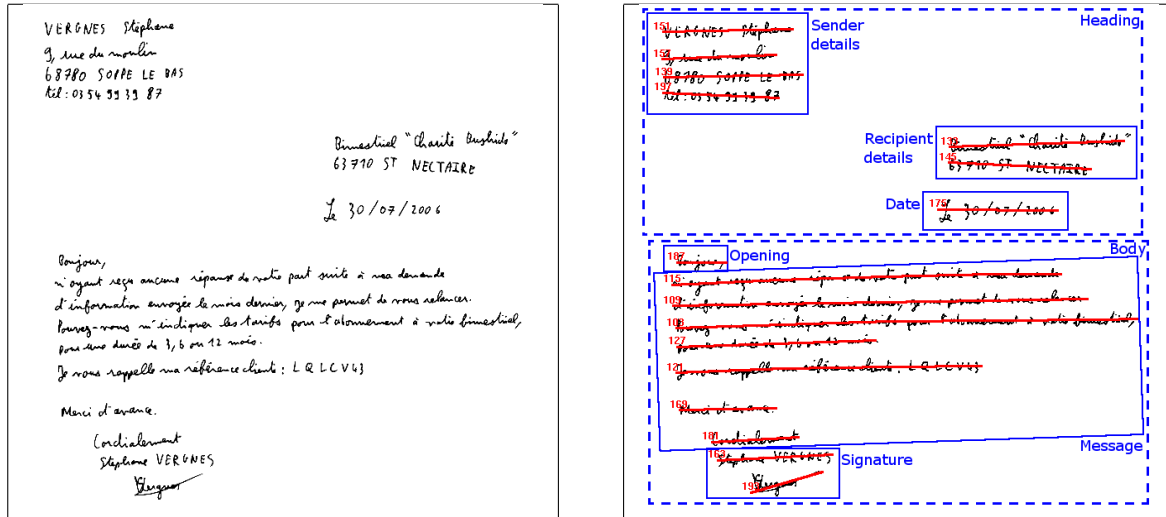 VERGNES Stéphane
9, rue du moulin
68780 SOPPE LE BAS
tél : 03 54 99 39 87
Bimestriel "Charité Bushido"
63710 ST NECTAIRE
Le 30/07/2006
Bonjour,
n'ayant reçu aucune réponse de votre part suite à ma demande
d'information envoyée le mois dernier, je me permet de vous relancer.
Pouvez-vous m'indiquer les tarifs pour l'abonnement à votre bimestriel,
pour une durée de 3, 6 ou 12 mois.
Je vous rappelle ma référence client : LQLCV43
Merci d'avance.
Cordialement
Stéphane VERGNES
Vergnes
Heading
Sender
details
151 VERGNES Stéphane
157 9, rue du moulin
139 68780 SOPPE LE BAS
197 tél : 03 54 99 39 87
Recipient
details
133 Bimestriel "Charité Bushido"
145 63710 ST NECTAIRE
Date
175 Le 30/07/2006
Body
Opening
187 Bonjour,
115 n'ayant reçu aucune réponse de votre part suite à ma demande
109 d'information envoyée le mois dernier, je me permet de vous relancer.
103 Pouvez-vous m'indiquer les tarifs pour l'abonnement à votre bimestriel,
127 pour une durée de 3, 6 ou 12 mois.
121 Je vous rappelle ma référence client : LQLCV43
169 Merci d'avance.
181 Cordialement
Message
163 Stéphane VERGNES
Signature
Vergnes